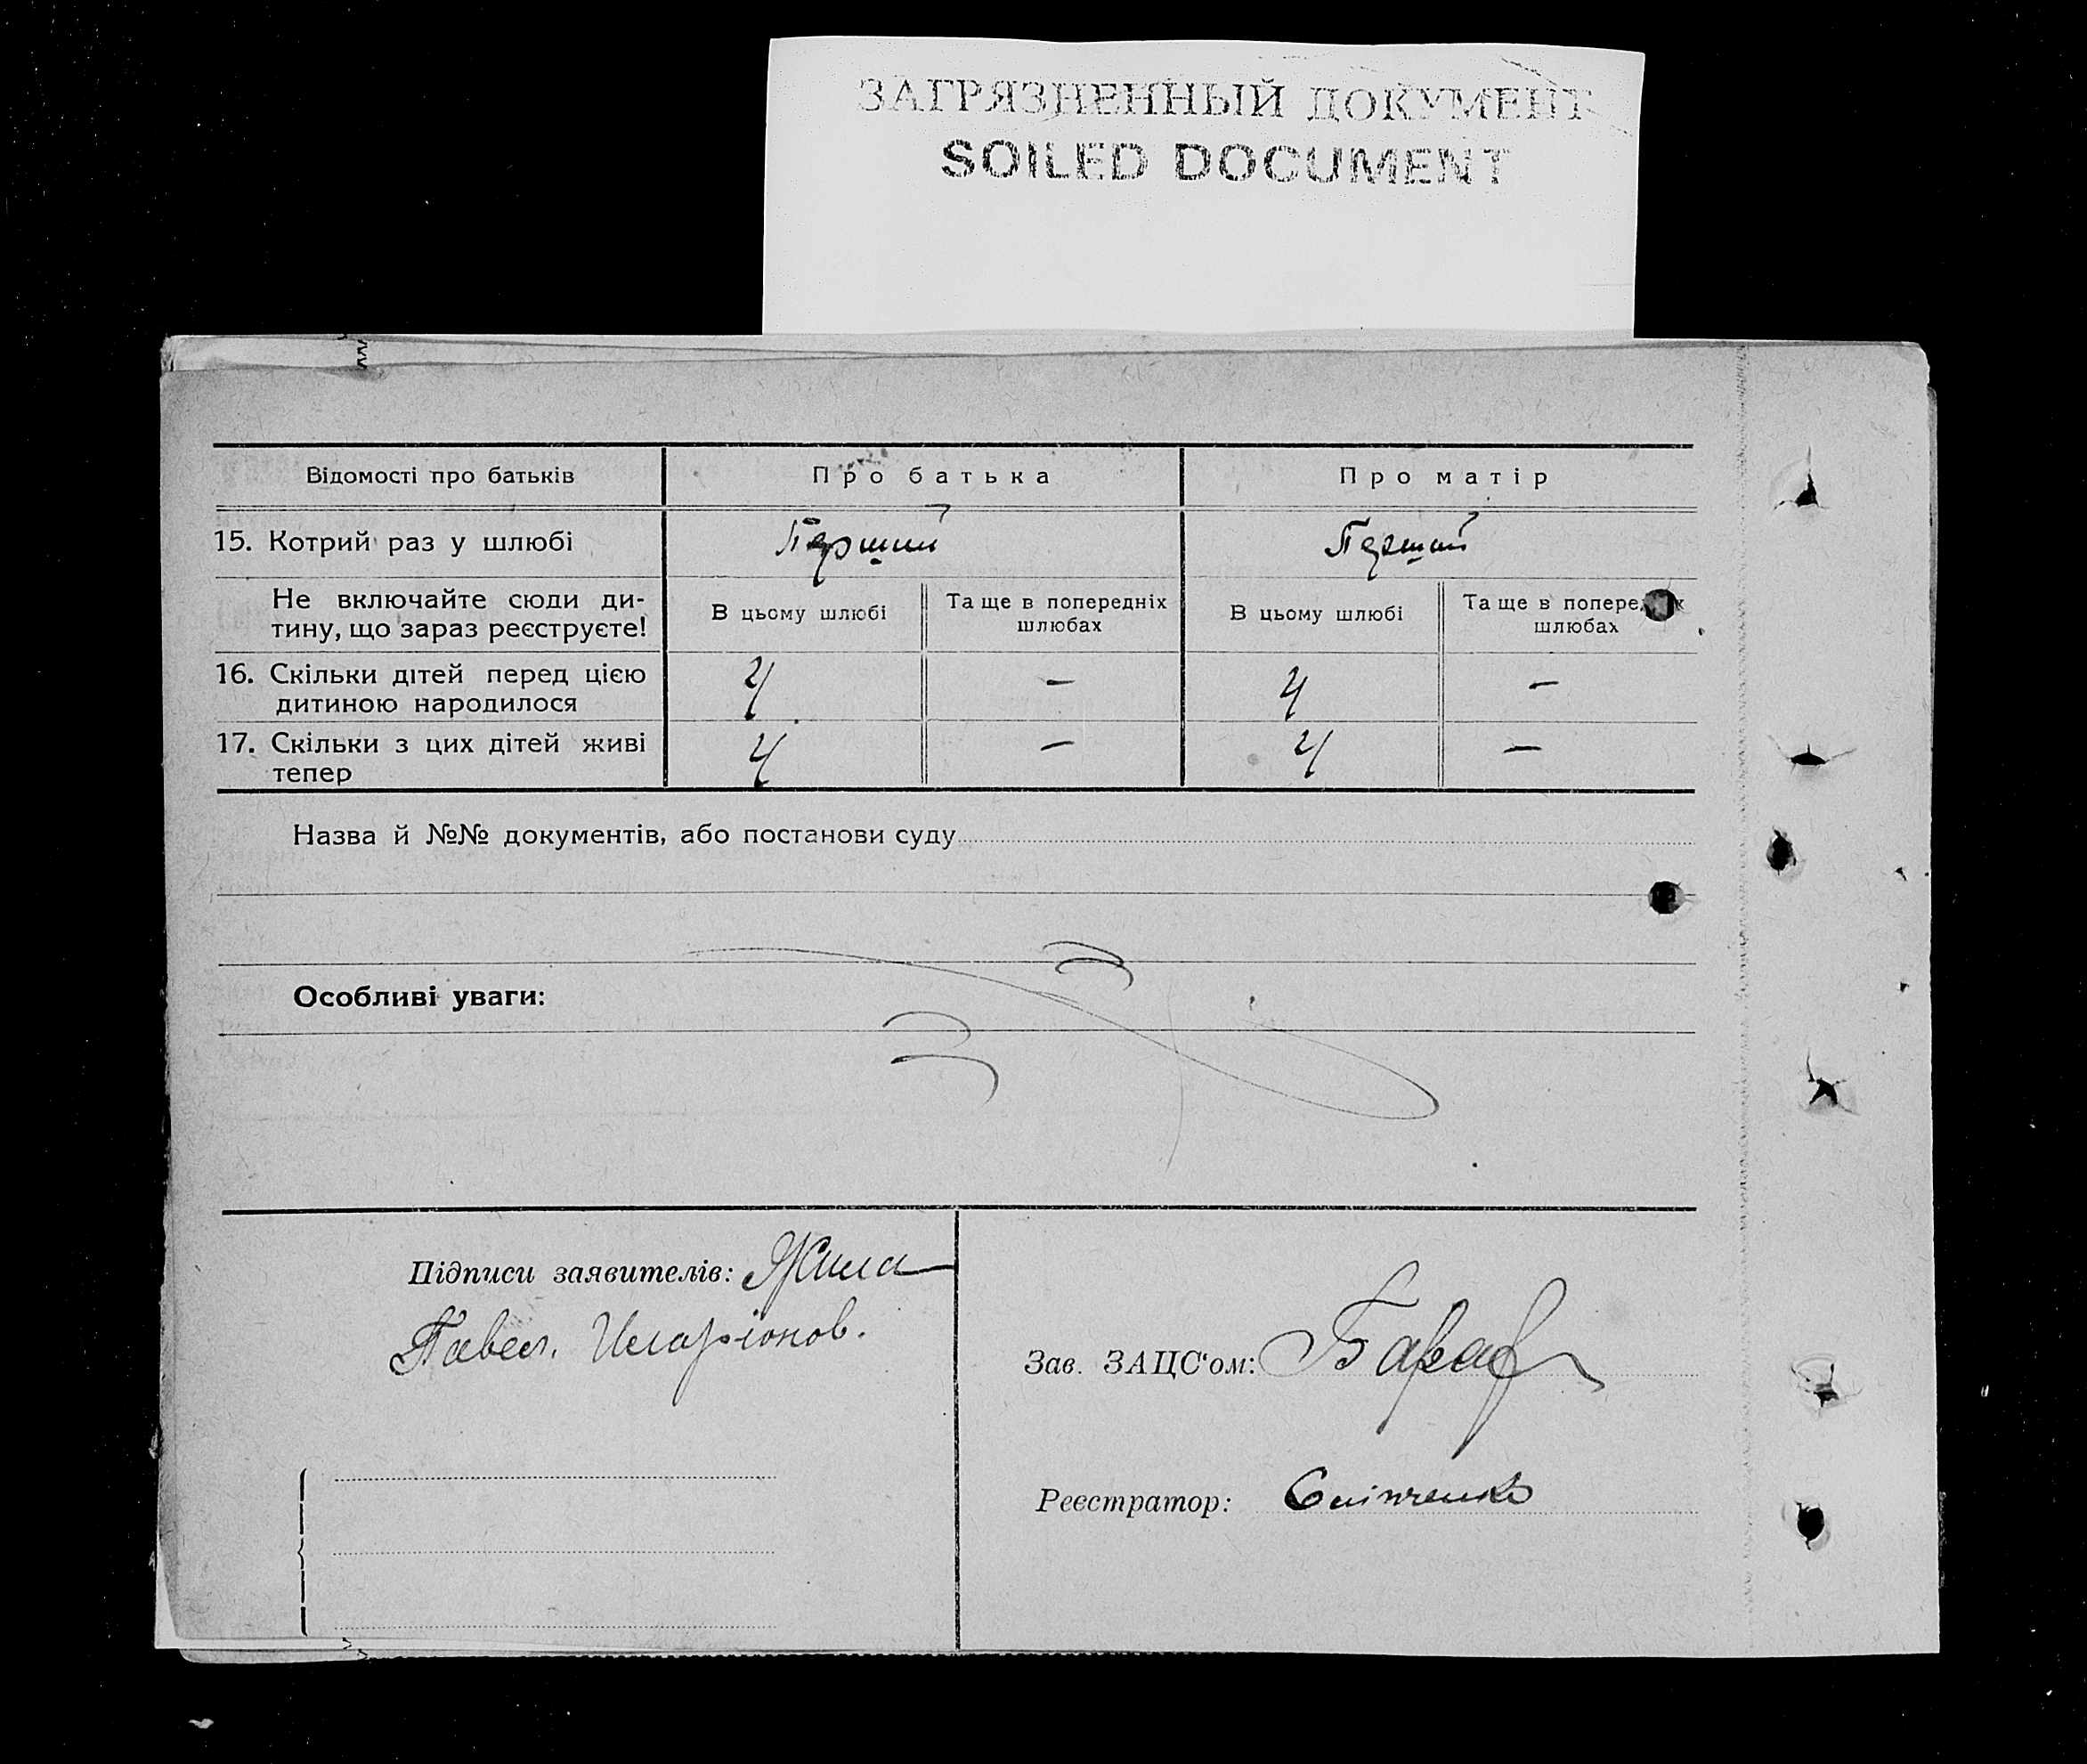 ЗАГРЯЗНЕННЫЙ ДОКУМЕНТ
SOILED DOCUMENT
Відомості про батьків Про батька Про матір
15. Котрий раз у шлюбі Перший Перший
Не включайте сюди ди-
тину, що зараз реєструєте!
В цьому шлюбі
Та ще в попередніх
шлюбах
В цьому шлюбі
Та ще в
шлюбах
16. Скільки дітей перед цією
дитиною народилося
4 – 4 –
17. Скільки з цих дітей живі
тепер
4 – 4 –
Назва й №№ документів, або постанови суду
Особливі уваги:
Підписи заявителів: Жила
Павел. Иларіонов.
Зав. ЗАЦС'ом:
Реєстратор: